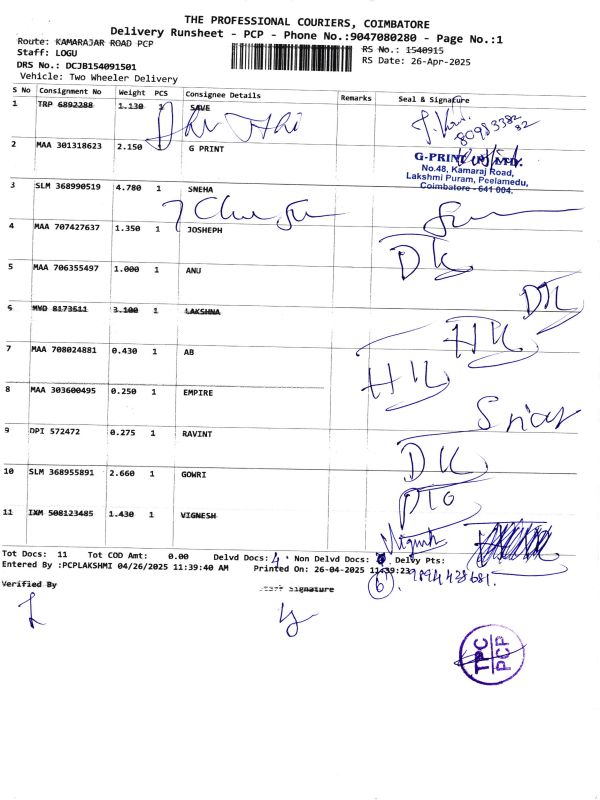 THE PROFESSIONAL COURIERS, COIMBATORE
Delivery Runsheet - PCP - Phone No.:9047080280 - Page No.:1
Route: KAMARAJAR ROAD PCP
RS No.: 1540915
Staff: LOGU
RS Date: 26-Apr-2025
DRS No.: DCJB154091501
Vehicle: Two Wheeler Delivery
S No Consignment No Weight PCS Consignee Details Remarks Seal & Signature
1 TRP 6892288 1.130 1 SAVE
8098338232
2 MAA 301318623 2.150 1 G PRINT
G-PRINT (P) LTD.
No.48, Kamaraj Road,
Lakshmi Puram, Peelamedu,
Coimbatore - 641 004.
3 SLM 368990519 4.780 1 SNEHA
4 MAA 707427637 1.350 1 JOSHEPH
DK
5 MAA 706355497 1.000 1 ANU
6 MWD 8173511 3.100 1 LAKSHNA
7 MAA 708024881 0.430 1 AB
8 MAA 303600495 0.250 1 EMPIRE
9 DPI 572472 0.275 1 RAVINT
DK
10 SLM 368955891 2.660 1 GOWRI
11 IXM 508123485 1.430 1 VIGNESH
Vignesh
Tot Docs: 11 Tot COD Amt: 0.00 Delvd Docs: 4 Non Delvd Docs: Delvy Pts:
Entered By :PCPLAKSHMI 04/26/2025 11:39:40 AM Printed On: 26-04-2025 11:39:23
6 9894428681.
Verified By Staff Signature
TPC
PCP